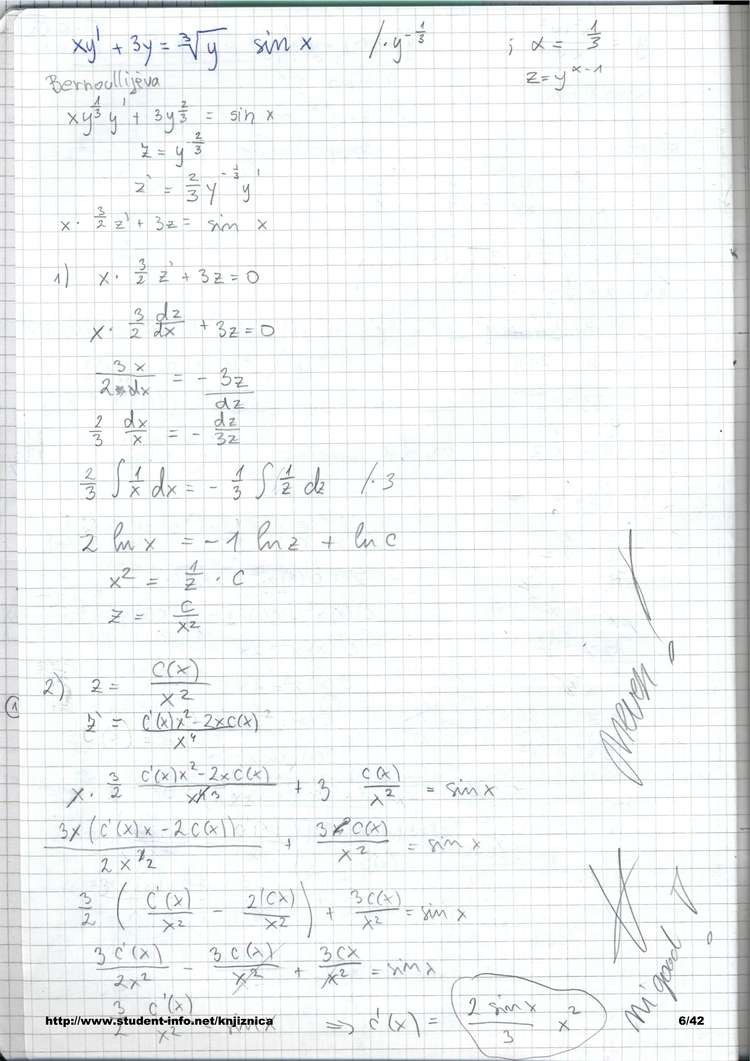 xy' + 3y = ∛y sin x /· y^(-1/3) ; α = 1/3
z = y^(α-1)
Bernoullijeva
xy^(1/3) y' + 3y^(2/3) = sin x
z = y^(2/3)
z' = 2/3 y^(-1/3) y'
x · 3/2 z' + 3z = sin x
1) x · 3/2 z' + 3z = 0
x · 3/2 dz/dx + 3z = 0
3x/(2 dx) = - 3z/dz
2/3 dx/x = - dz/3z
2/3 ∫ 1/x dx = - 1/3 ∫ 1/z dz /· 3
2 ln x = -1 ln z + ln c
x² = 1/z · C
z = C/x²
2) z = C(x)/x²
z' = (C'(x)x² - 2xC(x))/x⁴
x · 3/2 (C'(x)x² - 2xC(x))/x³ + 3 C(x)/x² = sin x
3x(C'(x)x - 2C(x))/(2x²) + 3C(x)/x² = sin x
3/2 (C'(x)/x² - 2(Cx)/x²) + 3C(x)/x² = sin x
3C'(x)/2x² - 3C(x)/x² + 3Cx/x² = sin x
3/2 C'(x)/x² = sin x ⇒ C'(x) = (2 sin x / 3) x²
http://www.student-info.net/knjiznica 6/42